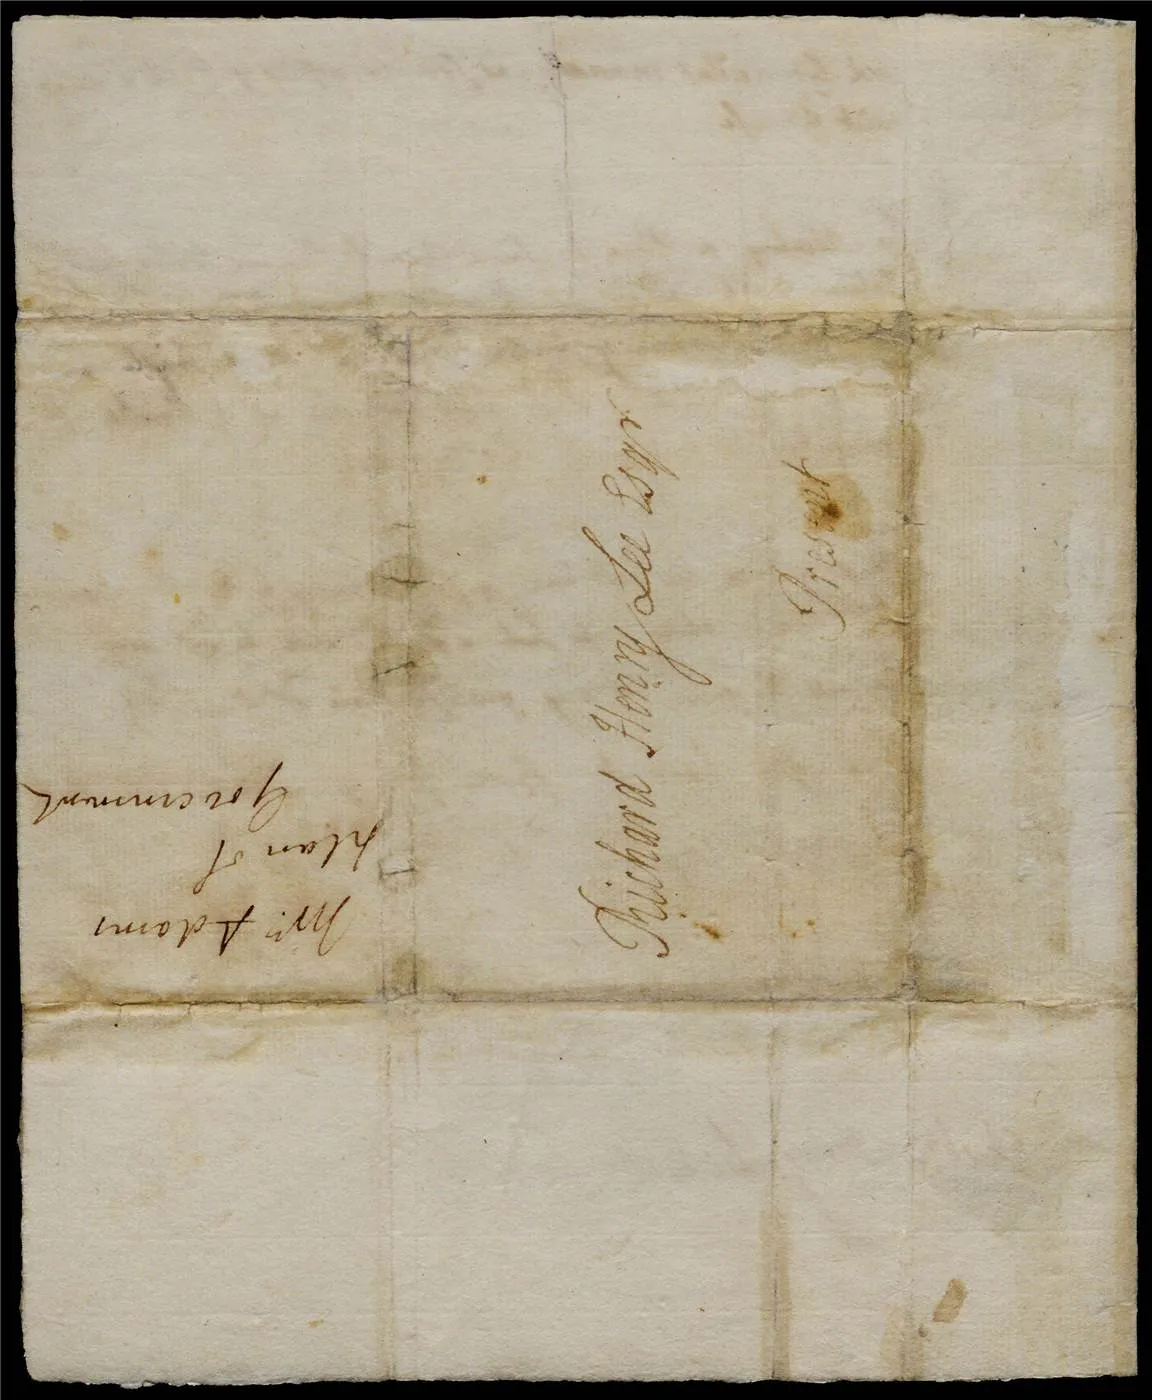 Richard Henry Lee Esqr
Present
Mr. Adams
plan of
Government